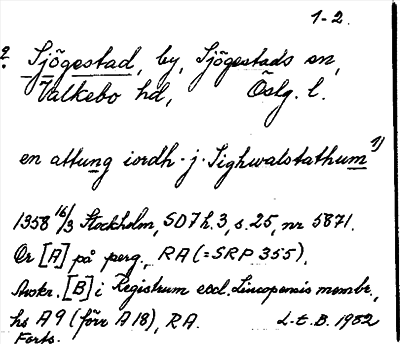 1-2.
? Sjögestad, by, Sjögestads sn,
Valkebo hd, Östg. l.
en attung iordh. j. Sighwalstathum 1)
1358 16/3 Stockholm, SD7 h. 3, s. 25, nr 5871.
Or [A] på perg., RA (=SRP 355),
Avskr. [B] i Registrum eccl. Lincopensis membr.,
hs A 9 (förr A 18), RA. L-E.B. 1982
Forts.